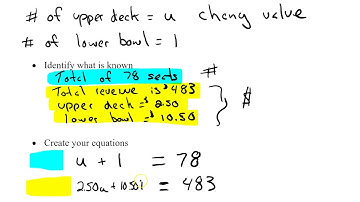 # of upper deck = u chang value
# of lower bowl = l
• Identify what is known
Total of 78 seats #
Total revenue is $483
upper deck = $2.50
lower bowl = $10.50 $
• Create your equations
u + l = 78
2.50u + 10.50l = 483